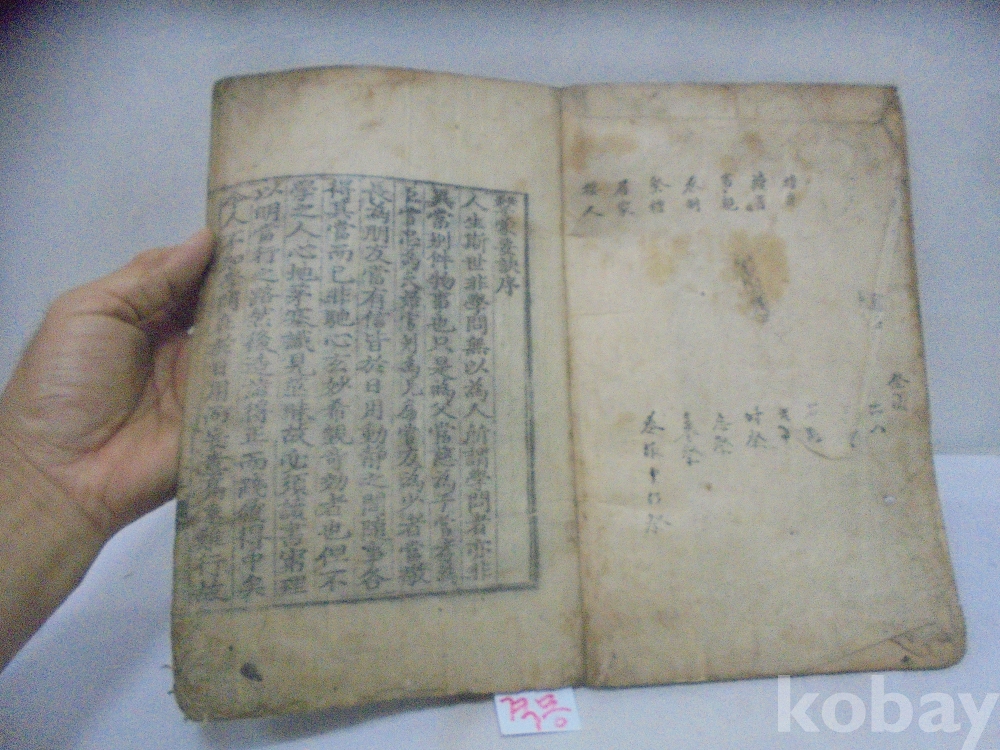 持身
讀書
事親
喪制
祭禮
居家
接人
時祭
忌祭
墓祭
喪服中行祭
擊蒙要訣序
人生斯世非學問無以爲人所謂學問者亦非
異常別件物事也只是爲父當慈爲子當孝爲
臣當忠爲夫婦當別爲兄弟當友爲少者當敬
長爲朋友當有信皆於日用動靜之間隨事各
得其當而已非馳心玄妙希覬奇效者也但不
學之人心地茅塞識見茫昧故必須讀書窮理
以明當行之路然後造詣得正而踐履得中矣
今人不知學問在於日用而妄意高遠難行故
kobay